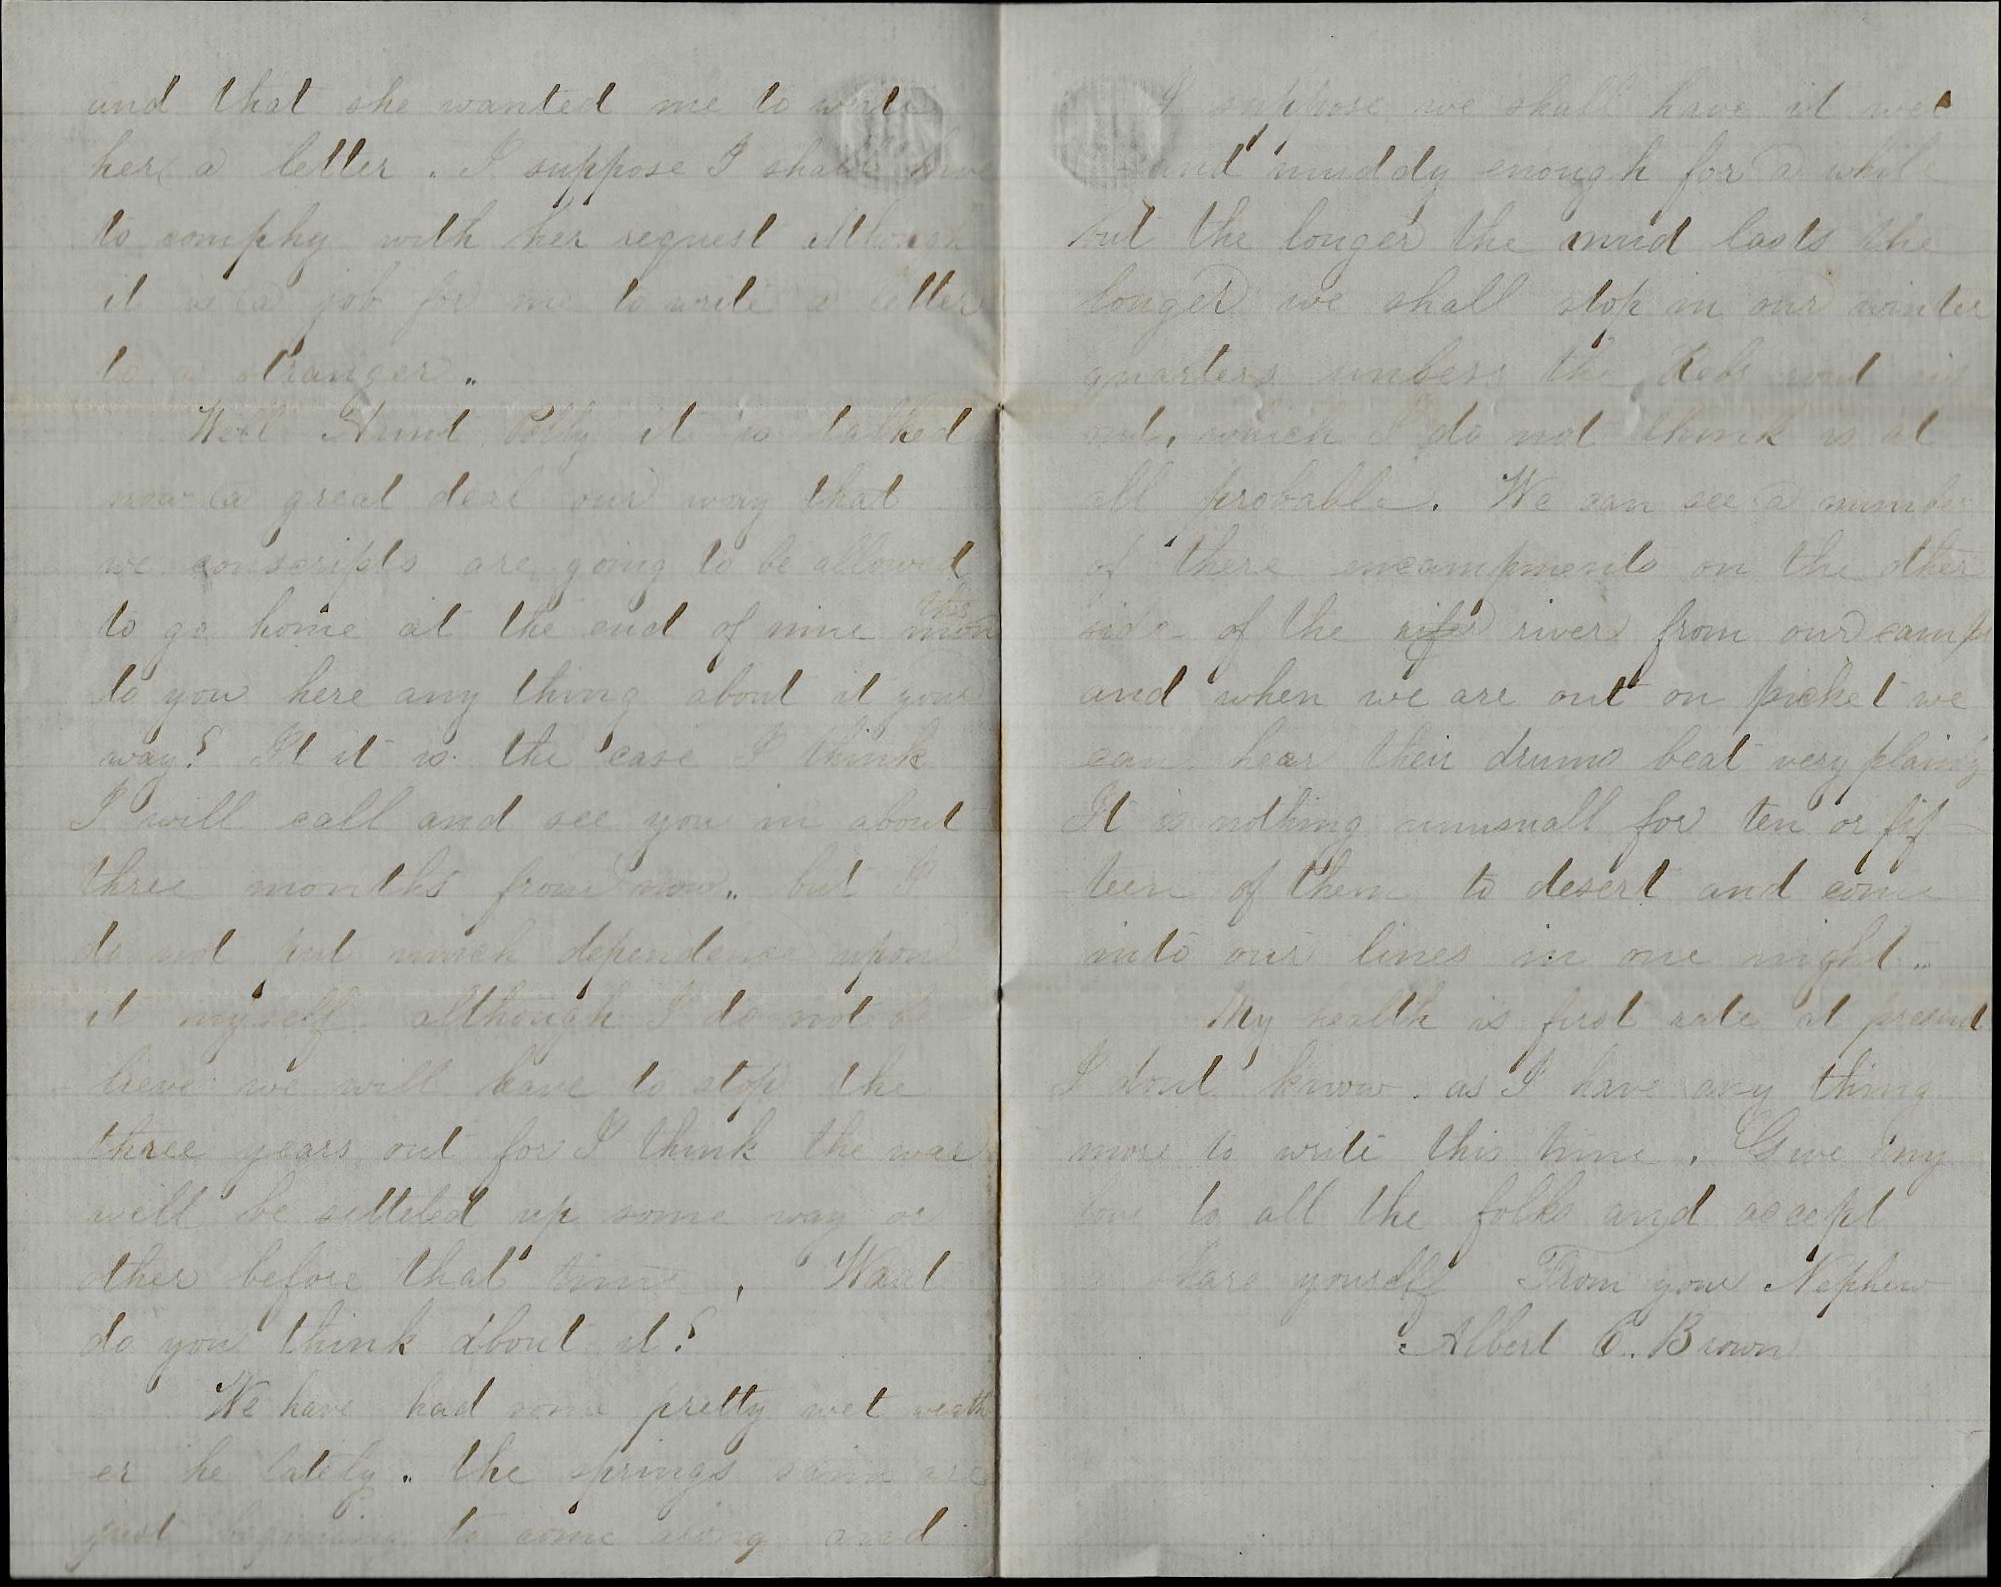 and that she wanted me to write
her a letter. I suppose I shall have
to comphy with her request although
it is a job for me to write a letter
to a stranger.
Well Aunt Polly it is talked
now a great deal our way that
we conscripts are going to be allowed
to go home at the end of nine mon
ths
to you here any thing about it your
way? It it is the case I think
I will call and see you in about
three months from now. but I
do not put much dependence upon
it myself. although I do not be
lieve we will have to stop the
three years out for I think the war
will be setteled up some way or
other before that time. What
do you think about it?
We have had some pretty wet weath
er he lately. the springs rains are
just beginning to come along and
I suppose we shall have it wet
and muddy enough for a while
but the longer the mud lasts the
longer we shall stop in our winter
quarters unless the Rebs rout us
out, which I do not think is at
all probable. We can see a number
of there encampments on the other
side of the rifer river from our camp
and when we are out on picket we
can hear their drums beat very plainly
It is nothing unusuall for ten or fif
teen of them to desert and come
into our lines in one night.
My health is first rate at present
I dont know as I have any thing
more to write this time. Give my
love to all the folks and accept
a share yourself From your Nephew
Albert C. Brown